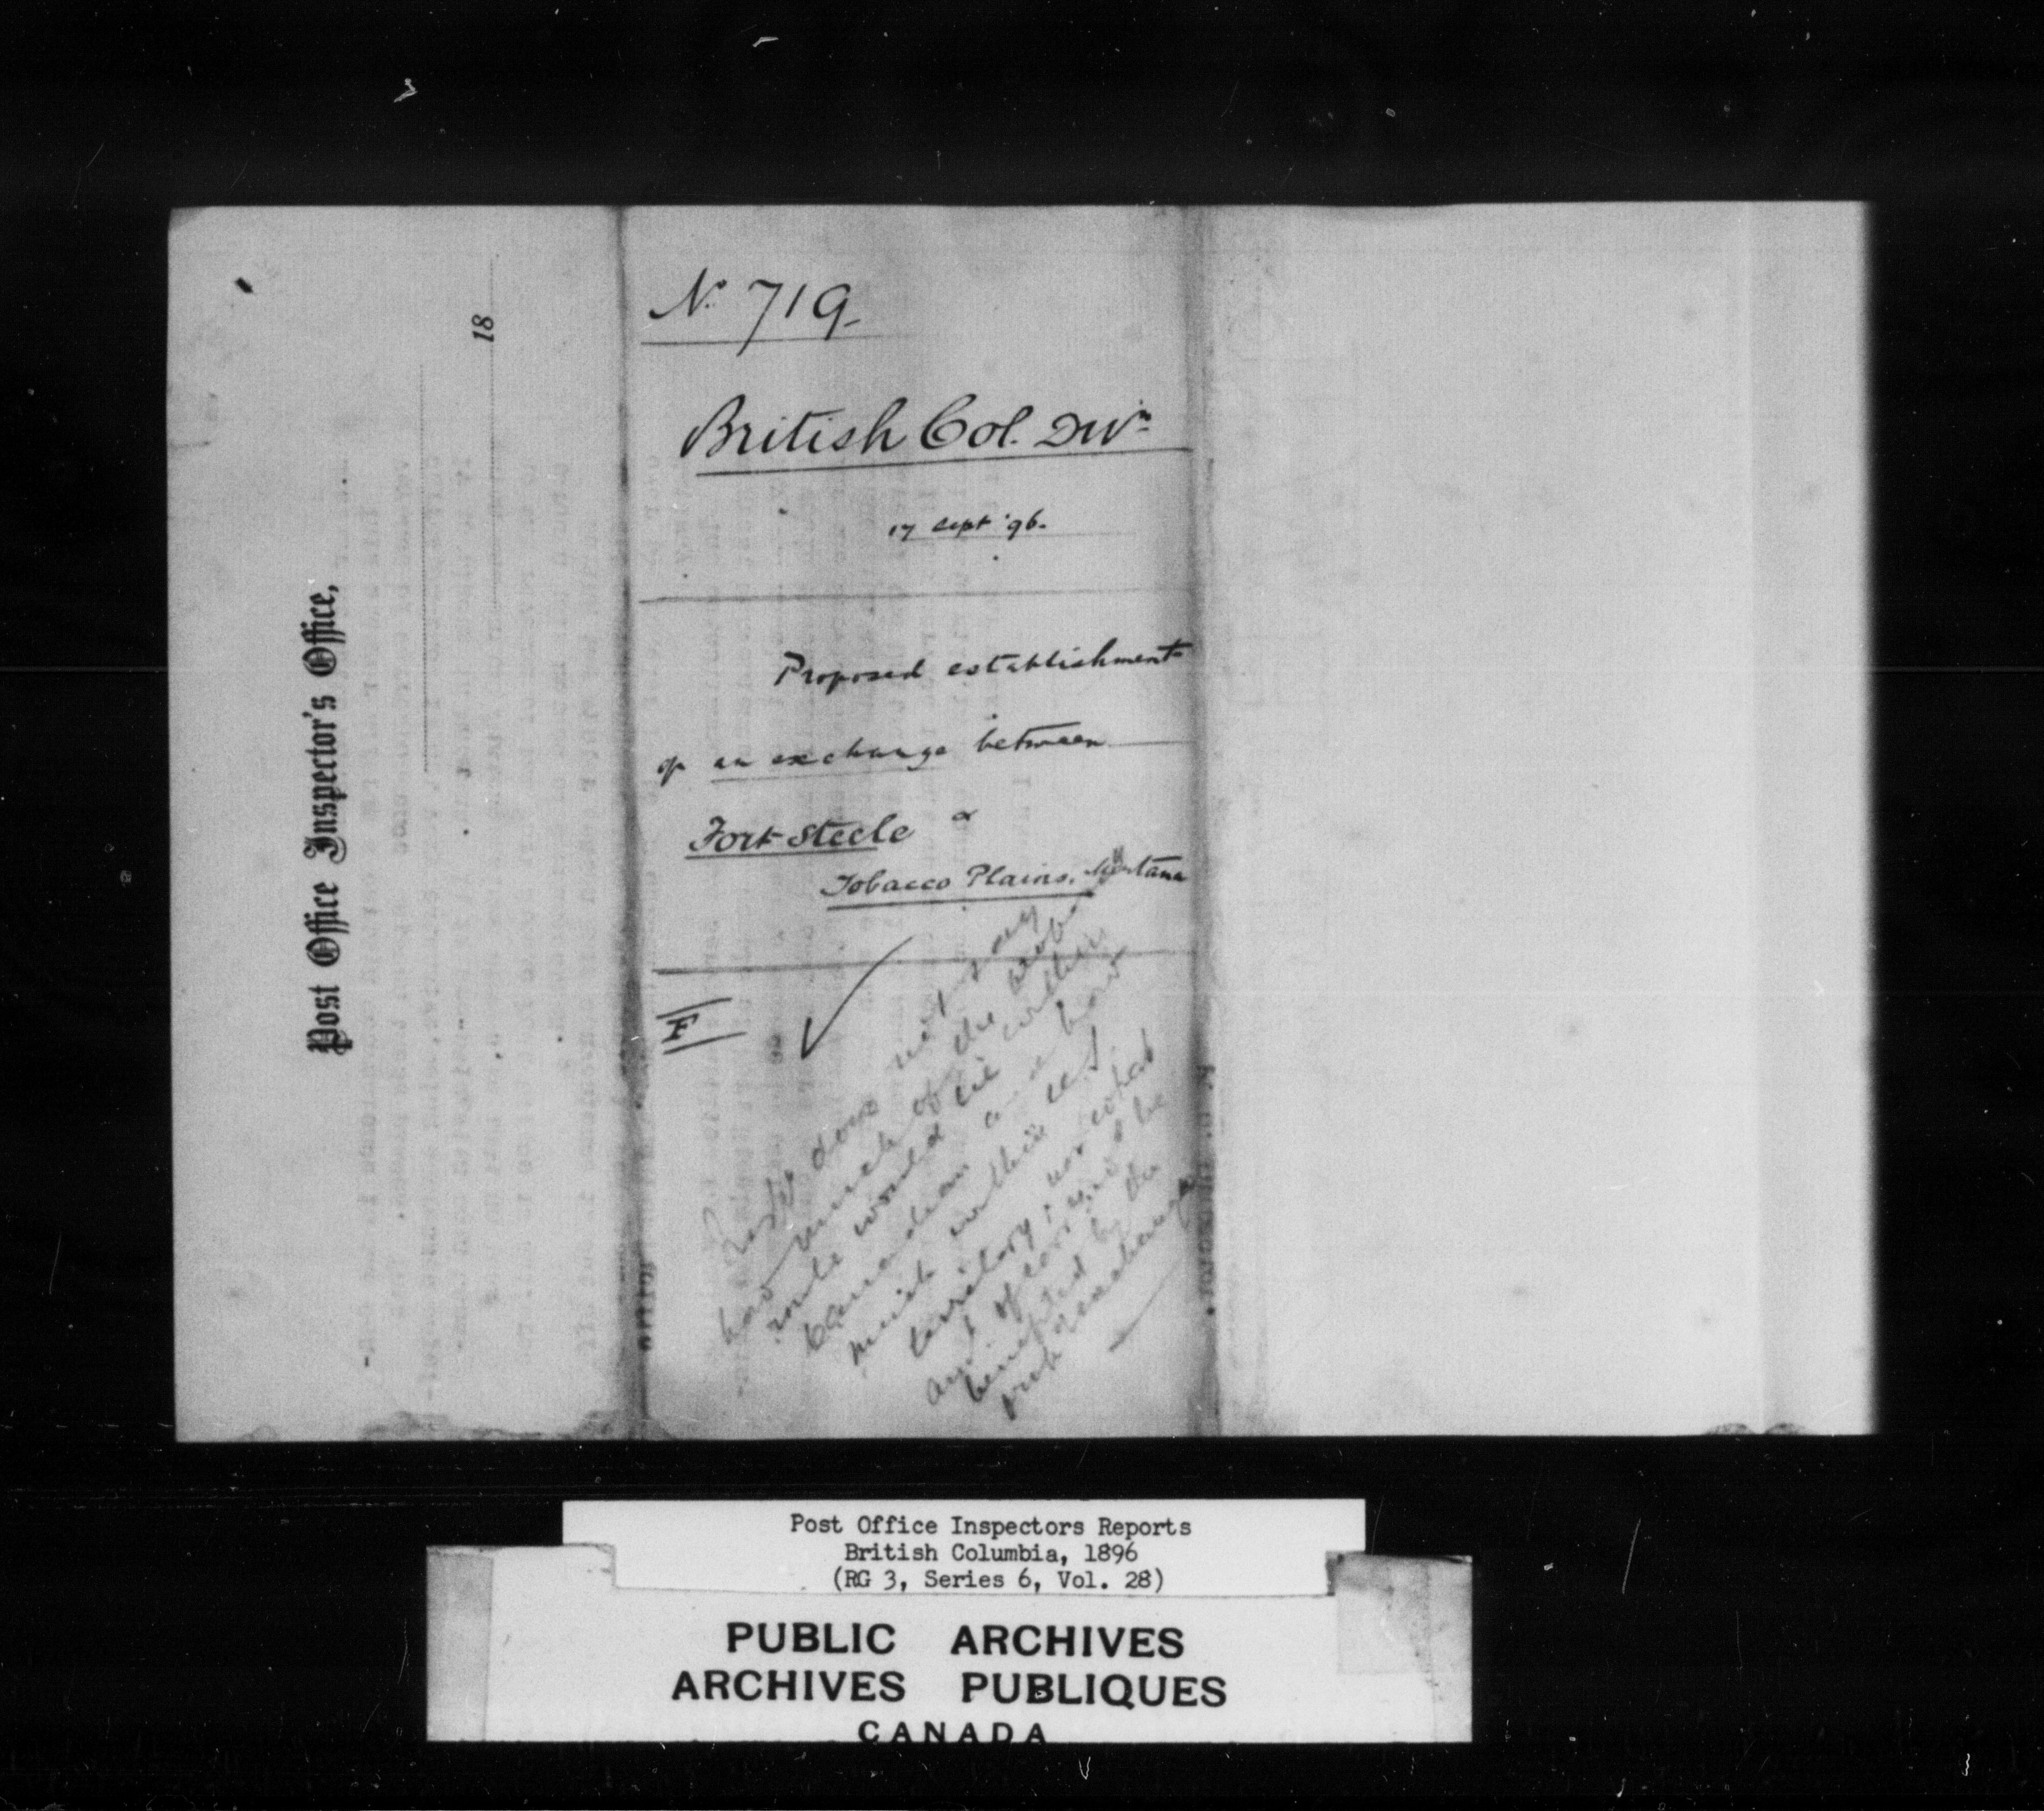 Post Office Inspector's Office,
18
No 719-
British Col. Divn
17 Sept '96.
Proposed establishment
of an exchange between
Fort Steele &
Tobacco Plains, Montana
F
does not say
how much of the
route would lie within
Canadian and how
much within U.S.
territory; nor what
amt of corr. would be
benefited by the
exchange
Post Office Inspectors Reports
British Columbia, 1896
(RG 3, Series 6, Vol. 28)
PUBLIC ARCHIVES
ARCHIVES PUBLIQUES
CANADA